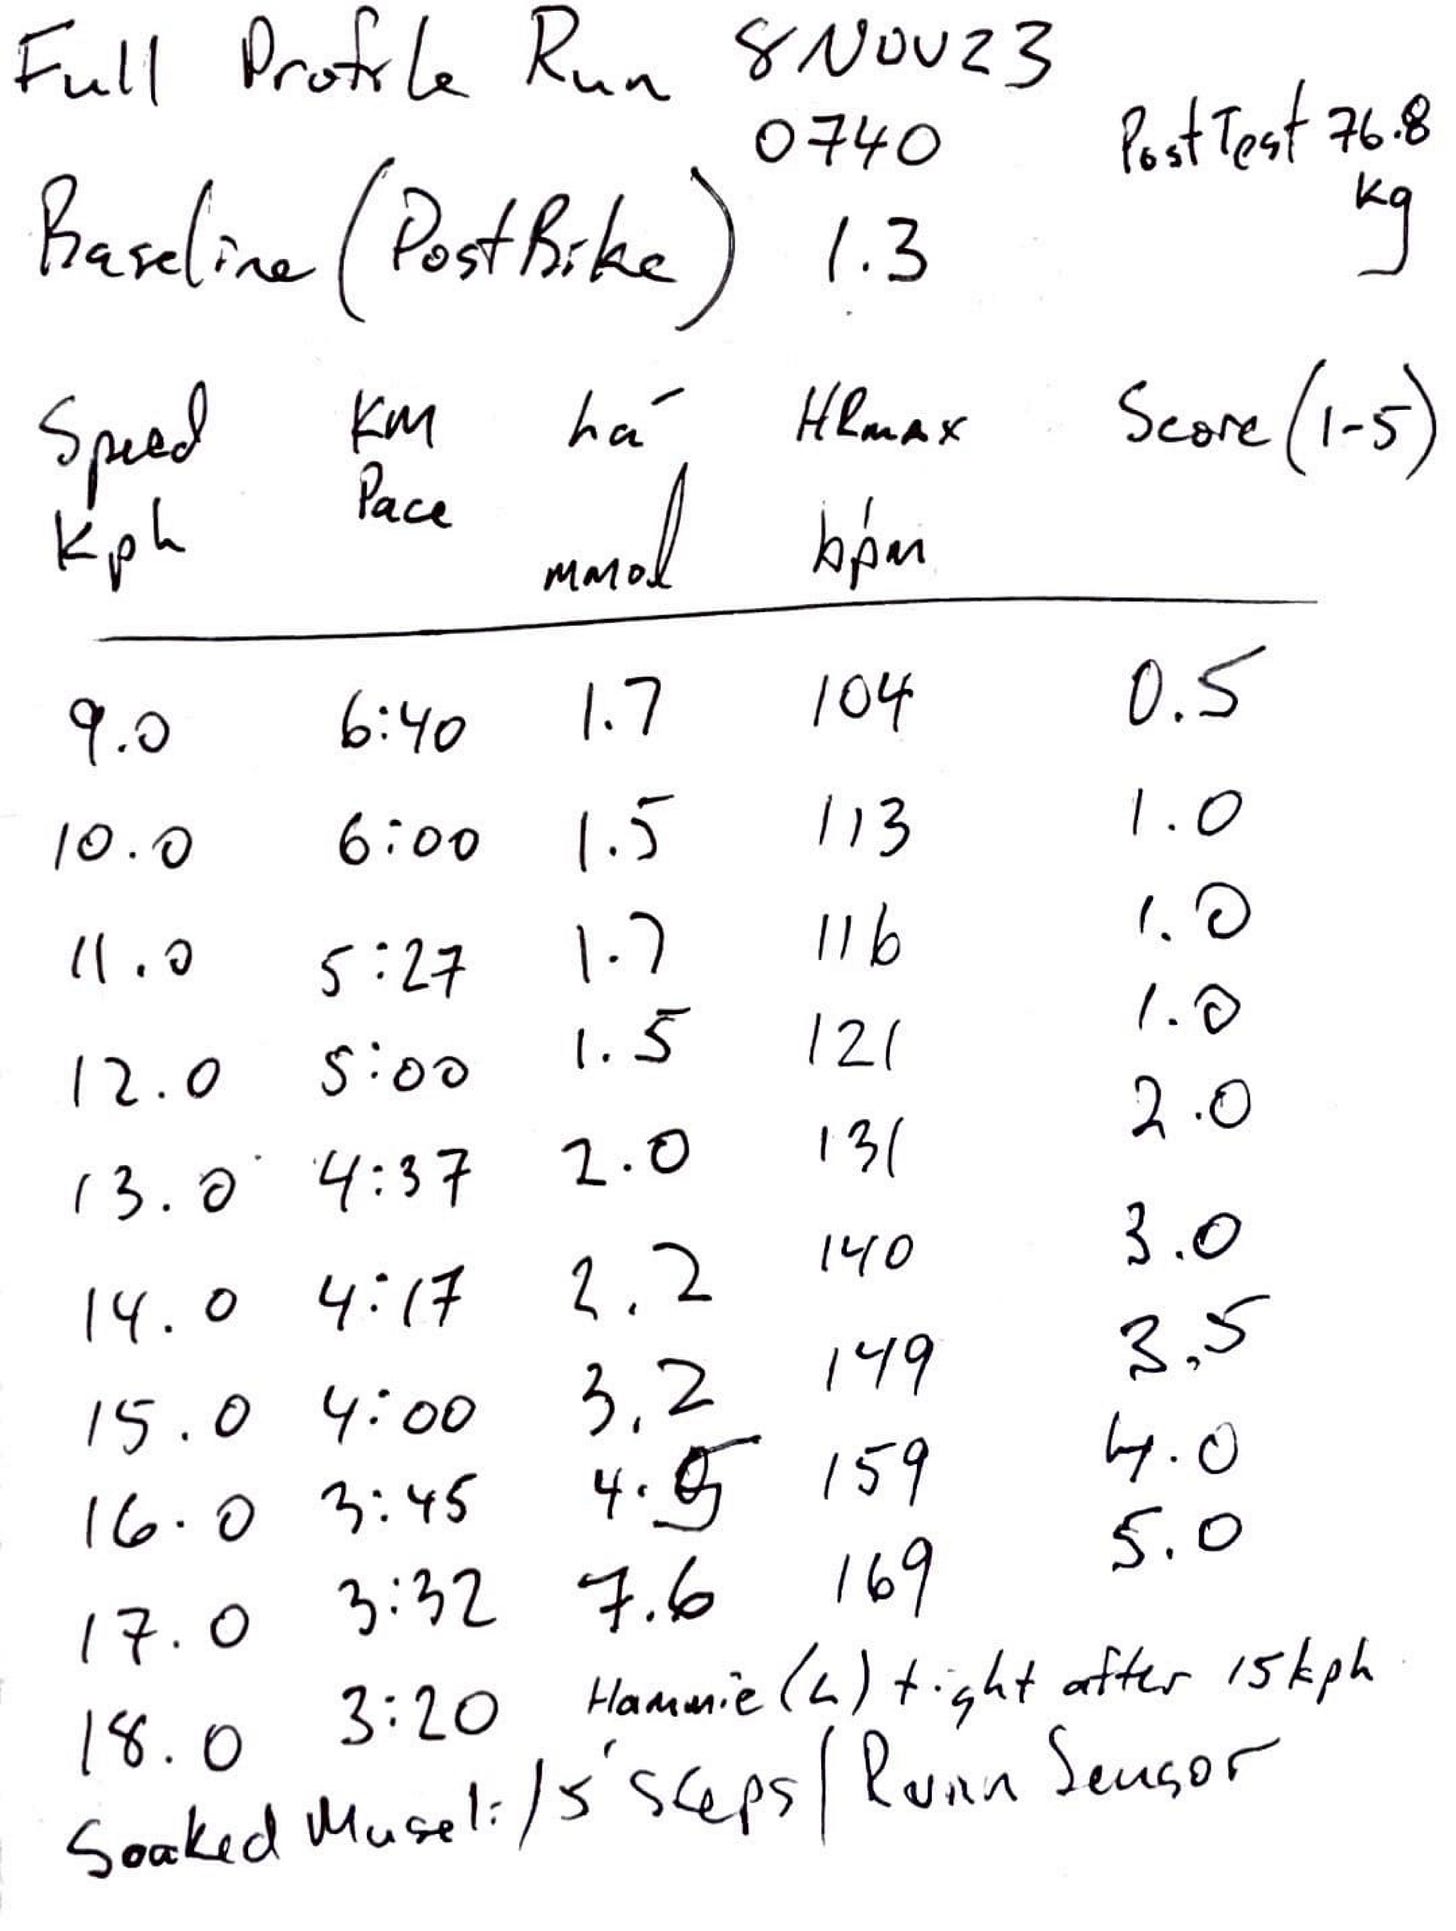 Full Profile Run 8NOV23
0740 Post Test 76.8
kg
Baseline (Post Bike) 1.3
Speed KM La- HRmax Score (1-5)
Kph Pace mmol bpm
9.0 6:40 1.7 104 0.5
10.0 6:00 1.5 113 1.0
11.0 5:27 1.7 116 1.0
12.0 5:00 1.5 121 1.0
13.0 4:37 2.0 131 2.0
14.0 4:17 2.2 140 3.0
15.0 4:00 3.2 149 3.5
16.0 3:45 4.5 159 4.0
17.0 3:32 7.6 169 5.0
18.0 3:20 Hammie (L) tight after 15kph
Soaked Museli / 5' Steps / Runn Sensor